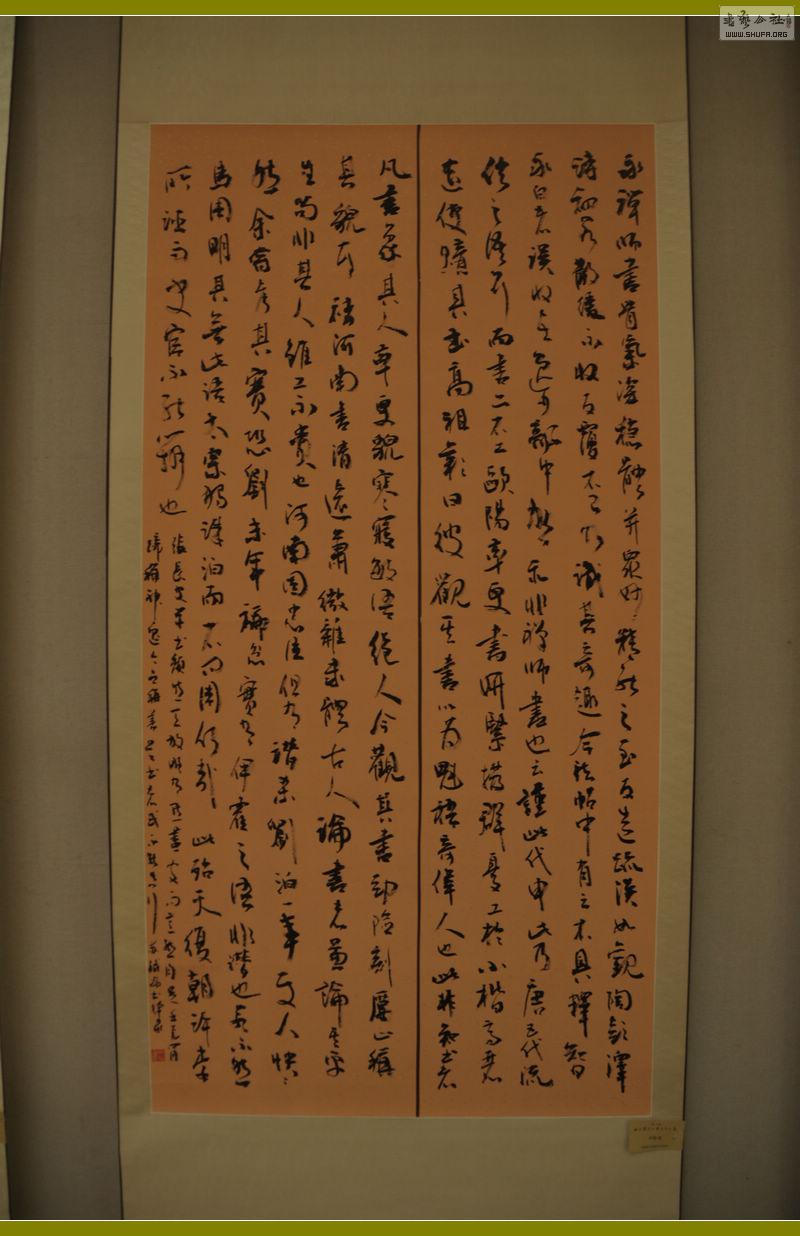 永禪師書骨氣深穩體并眾妙精能之至反造疏淡如觀陶彭澤
詩初若散緩不收反覆不已乃識其奇趣今法帖中有云不具釋智
永白者誤收在逸少部中然亦非禪師書也云謹此代申此乃唐五代流
俗之語耳而書亦不工歐陽率更書妍緊拔群尤工於小楷高麗
遣使購其書高祖歎曰彼觀其書以為魁梧奇偉人也此非知書者
凡書象其人率更貌寒寢敏悟絕人今觀其書勁險刻厲正稱
其貌耳褚河南書清遠蕭微雜隸體古人論書者兼論其平
生苟非其人雖工不貴也河南固忠臣但有譖殺劉洎一事使人怏怏
然余嘗考其實恐劉末年褊忿實有伊霍之語非譖也若不然
馬周明其無此語太宗獨誅洎而不問周何哉此殆天后朝許李
所誣而史官不能辨也
張長史草書頹然天放略有點畫處而意態自足
號稱神逸今世稱善草書者或不能真行
WWW.SHUFA.ORG